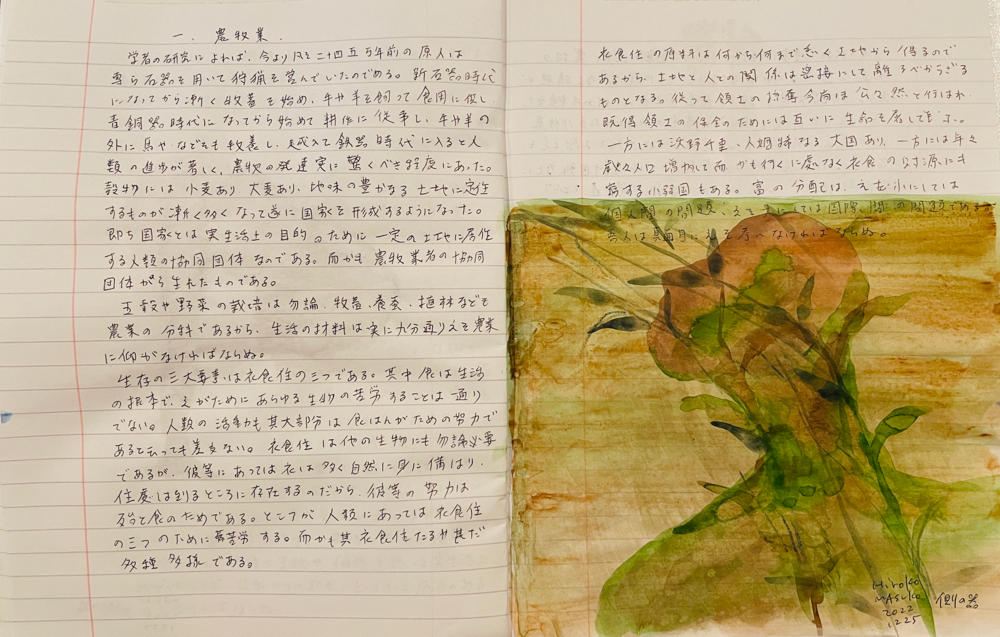 一. 農牧業.
学者の研究によれば、今より凡そ二十四五万年前の原人は
専ら石器を用いて狩猟を営んでいたのである。新石器時代
になってから漸く牧畜を始め、牛や羊を飼って食用に供し
青銅器時代になってから始めて耕作に従事し、牛や羊の
外に馬やなどをも牧養し、越えて鉄器時代に入ると人
類の進歩が著しく、農牧の発達実に驚くべき程度にあった。
穀物には小麦あり、大麦あり、地味の豊かなる土地に定住
するものが漸く多くなって遂に国家を形成するようになった。
即ち国家とは実生活上の目的のために一定の土地に居住
する人類の協同団体なのである。而かも農牧業者の協同
団体から生れたものである。
五穀や野菜の栽培は勿論、牧畜、養蚕、植林なども
農業の分科であるから、生活の材料は実に九分通りえを農業
に仰がなければならぬ。
生存の三大要素は衣食住の三つである。其中食は生活
の根本で、えがためにあらゆる生物の苦労することは通り
でない。人類の活動も其大部分は食はんがための努力で
あると云っても差支ない。衣食住は他の生物にも勿論必要
であるが、彼等にあっては衣は多く自然に身に備はり、
住処は到るところに存在するのだから、彼等の努力は
殆ど食のためである。ところが人類にあっては衣食住
の三つのために苦労する。而かも其衣食住たるや甚だ
多種多様である。
衣食住の資料は何から何まで悉く土地から得るので
あるから、土地と人との関係は密接にして離るべからざる
ものとなる。従って領土の争奪今尚ほ公々然と行はれ
既得領土の保全のためには互いに生命を賭して
一方には沃野千里、人烟稀なる大国あり、一方には年々
歳々人口増加して而かも行くに処なく衣食の財源にも
窮する小弱国もある。富の分配は、えを小にしては
個人間の問題、えを大にしては国際間の問題である
吾人は真面目に考えなければならぬ。
Hiroko
MASUKO
2022
1225